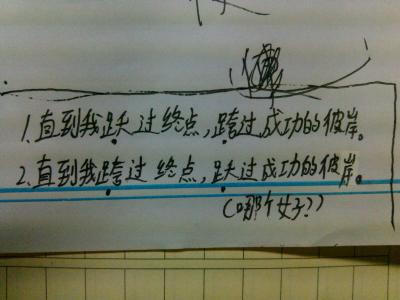 1.直到我跃过终点，跨过成功的彼岸。
2.直到我跨过终点，跃过成功的彼岸。
（哪个好？）